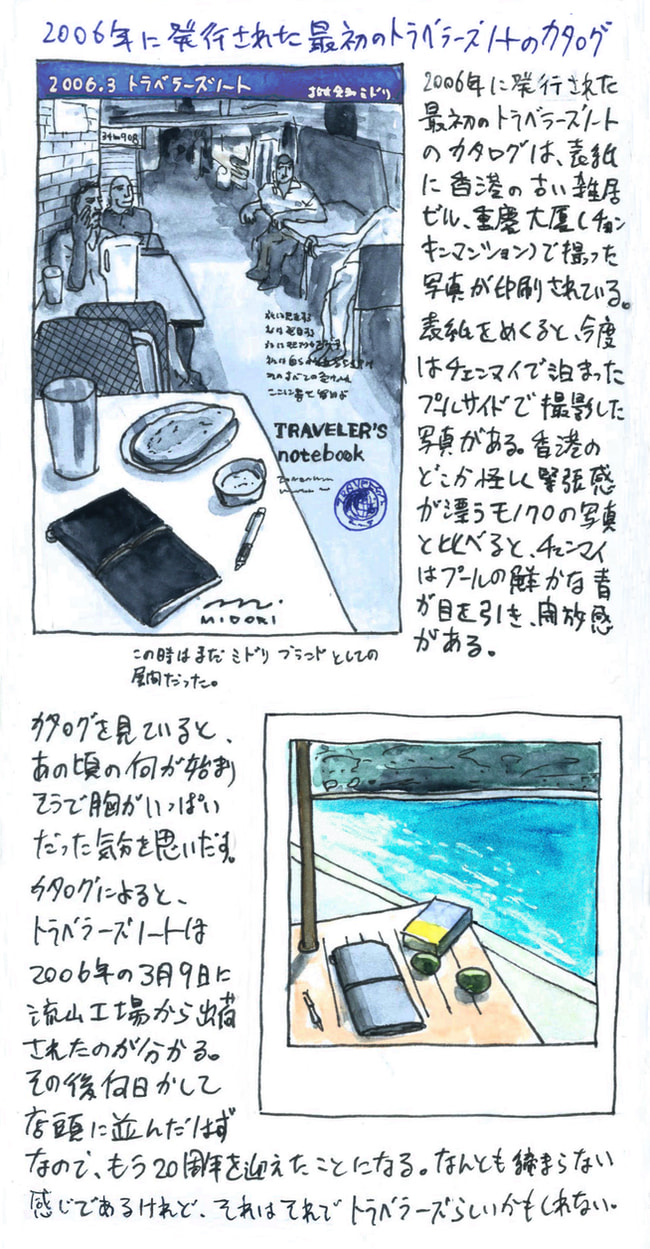 2006年に発行された最初のトラベラーズノートのカタログ
2006.3 トラベラーズノート
ミドリ
TRAVELER'S
notebook
MIDORI
この時はまだミドリブランドとしての
展開だった。
2006年に発行された
最初のトラベラーズノート
のカタログは、表紙
に香港の古い雑居
ビル、重慶大厦(チョン
キンマンション)で撮った
写真が印刷されている。
表紙をめくると、今度
はチェンマイで泊まった
プールサイドで撮影した
写真がある。香港の
どこか怪しく緊張感
が漂うモノクロの写真
と比べると、チェンマイ
はプールの鮮かな青
が目を引き、開放感
がある。
カタログを見ていると、
あの頃の何が始まり
そうで胸がいっぱい
だった気分を思いだす。
カタログによると、
トラベラーズノートは
2006年の3月9日に
流山工場から出荷
されたのが分かる。
その後何日かして
店頭に並んだはず
なので、もう20周年を迎えたことになる。なんとも締まらない
感じであるけれど、それはそれでトラベラーズらしいかもしれない。